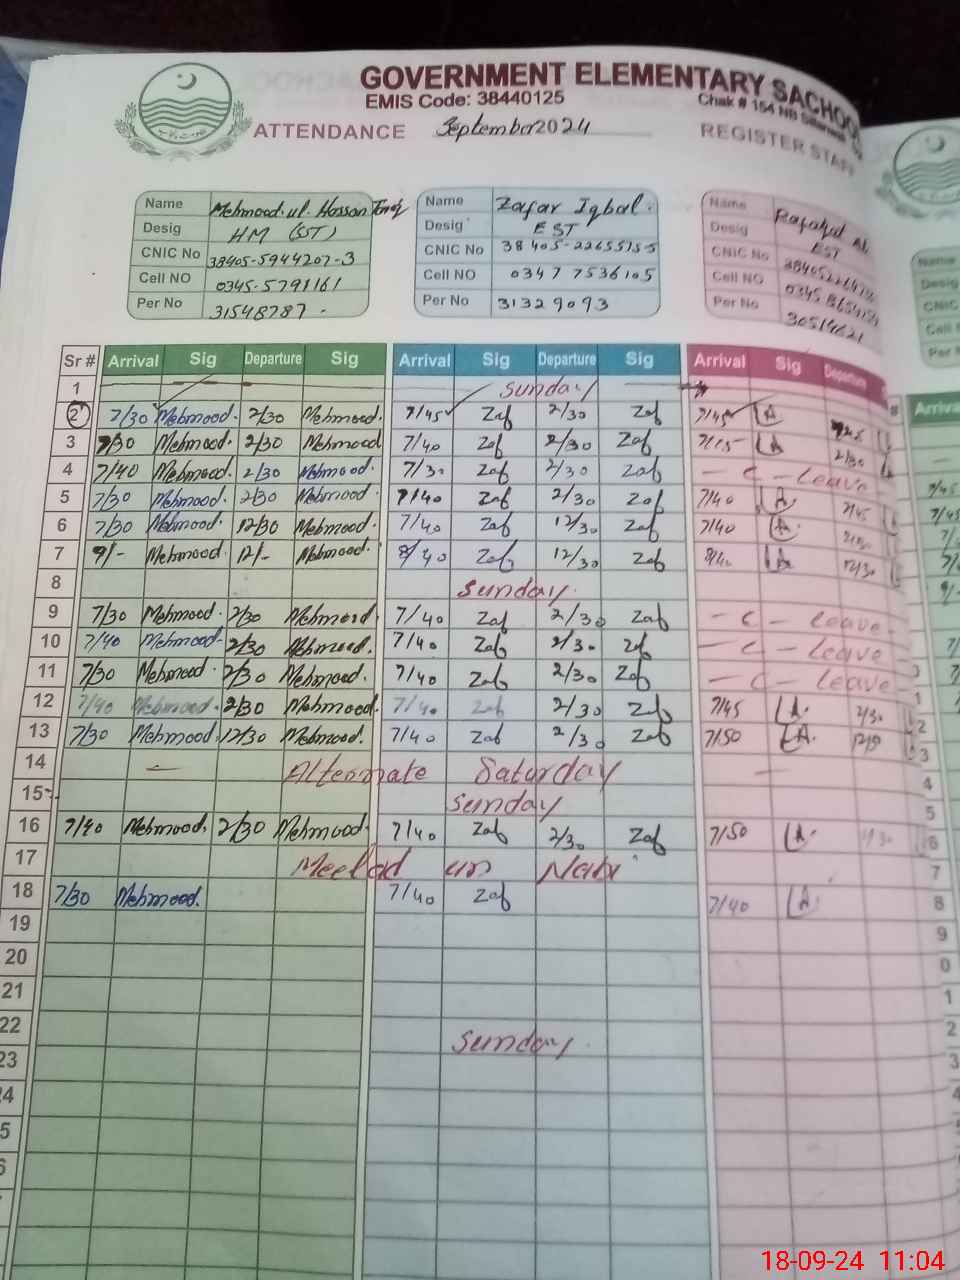 GOVERNMENT ELEMENTARY SACHOO
EMIS Code: 38440125
Chak # 154 NB
ATTENDANCE September 2024 REGISTER STAFF
Name Mehmood ul Hassan
Desig HM (SST)
CNIC No 38405-5944207-3
Cell NO 0345-5791161
Per No 31548787
Name Zafar Iqbal
Desig EST
CNIC No 38405-2265575-5
Cell NO 0347 7536105
Per No 31329093
Name
Desig EST
CNIC No
Cell NO
Per No 30514621
Name
Desig
CNIC
Cell
Per
Sr # Arrival Sig Departure Sig Arrival Sig Departure Sig Arrival Sig Departure Arrival
1 Sunday
2 7/30 Mehmood. 2/30 Mehmood. 7/45 Zaf 2/30 Zaf 7/45
3 7/30 Mehmood. 2/30 Mehmood 7/40 Zaf 2/30 Zaf 2/30
4 7/40 Mehmood. 2/30 Mehmood. 7/30 Zaf 2/30 Zaf - C - Leave
5 7/30 Mehmood. 2/30 Mehmood. 7/40 Zaf 2/30 Zaf 7/40
6 7/30 Mehmood. 12/30 Mehmood. 7/40 Zaf 12/30 Zaf 7/40
7 9/- Mehmood. 12/- Mehmood. 8/40 Zaf 12/30 Zaf 8/40 12/30
8 Sunday.
9 7/30 Mehmood. 2/30 Mehmood. 7/40 Zaf 2/30 Zaf - C - Leave
10 7/40 Mehmood. 2/30 Mehmood. 7/40 Zaf 2/30 Zaf - C - Leave
11 7/30 Mehmood. 2/30 Mehmood. 7/40 Zaf 2/30 Zaf - C - Leave
12 7/40 Mehmood. 2/30 Mehmood. 7/40 Zaf 2/30 Zaf 7/45 2/30
13 7/30 Mehmood. 12/30 Mehmood. 7/40 Zaf 2/30 Zaf 7/50
14 - Alternate Saturday -
15 Sunday
16 7/40 Mehmood. 2/30 Mehmood. 7/40 Zaf 2/30 Zaf 7/50
17 Meelad un Nabi
18 7/30 Mehmood. 7/40 Zaf 7/40
19
20
21
22 Sunday.
23
4
5
18-09-24 11:04